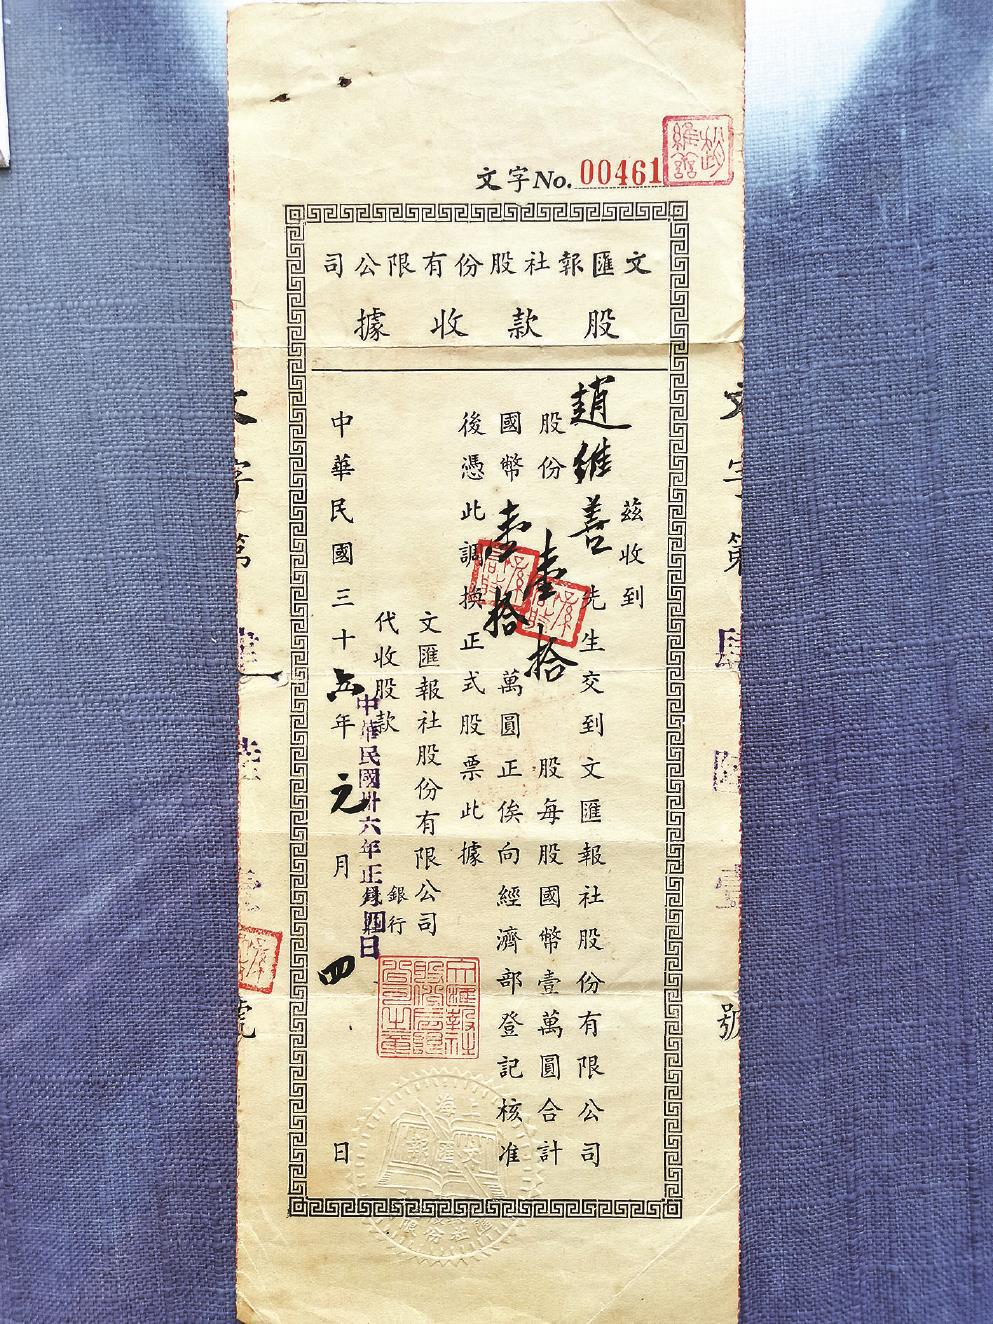 文字No. 00461
文匯報社股份有限公司
股款收據
茲收到
趙維善先生交到文匯報社股份有限公司
股份壹拾股每股國幣壹萬圓合計
國幣壹拾萬圓正俟向經濟部登記核准
後憑此調換正式股票此據
文匯報社股份有限公司
代收股款
銀行
中華民國卅六年正月四日
中華民國三十六年元月四日
趙維善
上海
文匯報
文字第
號